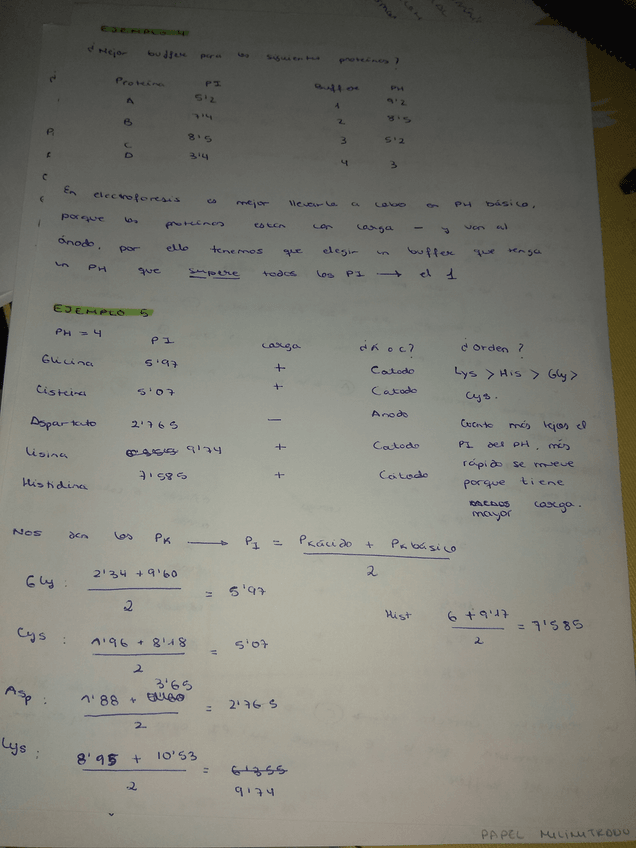 EJEMPLO 4
¿Mejor buffer para las siguientes proteínas?
Proteína PI Buffer PH
A 5'2 1 9'2
B 7'4 2 8'5
C 8'5 3 5'2
D 3'4 4 3
En electroforesis es mejor llevarla a cabo en PH básico,
porque las proteínas están con carga - y van al
ánodo, por ello tenemos que elegir un buffer que tenga
un PH que supere todos los PI → el 1
EJEMPLO 5
PH = 4 PI carga ¿A o C? ¿Orden?
Glicina 5'97 + Catodo Lys > His > Gly >
Cisteína 5'07 + Catodo Cys.
Aspartato 2'765 - Anodo Cuanto más lejos el
Lisina 9'74 + Catodo PI del PH, más
Histidina 7'585 + Catodo rápido se mueve
porque tiene
mayor carga.
Nos dan los PK → PI = PKácido + PKbásico
2
Gly: 2'34 + 9'60 = 5'97
2
Hist 6 + 9'17 = 7'585
2
Cys: 1'96 + 8'18 = 5'07
2
Asp: 1'88 + 3'65 = 2'765
2
Lys: 8'95 + 10'53 = 6'355
2 9'74
PAPEL MILIMITRADO